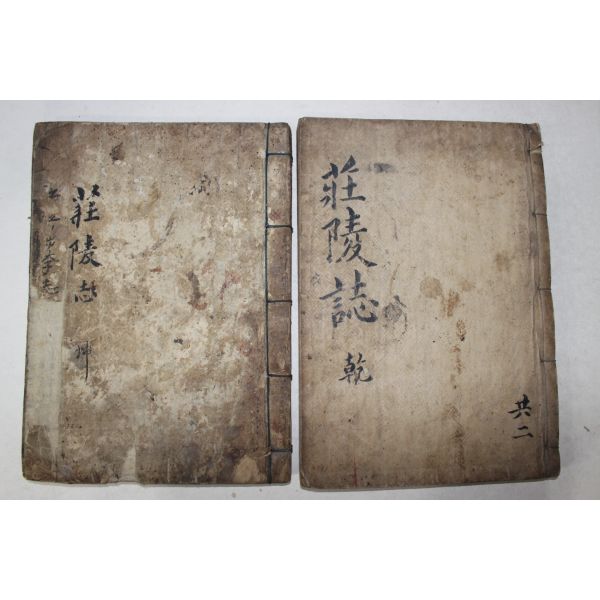 莊陵誌
乾
共二
莊陵誌
坤